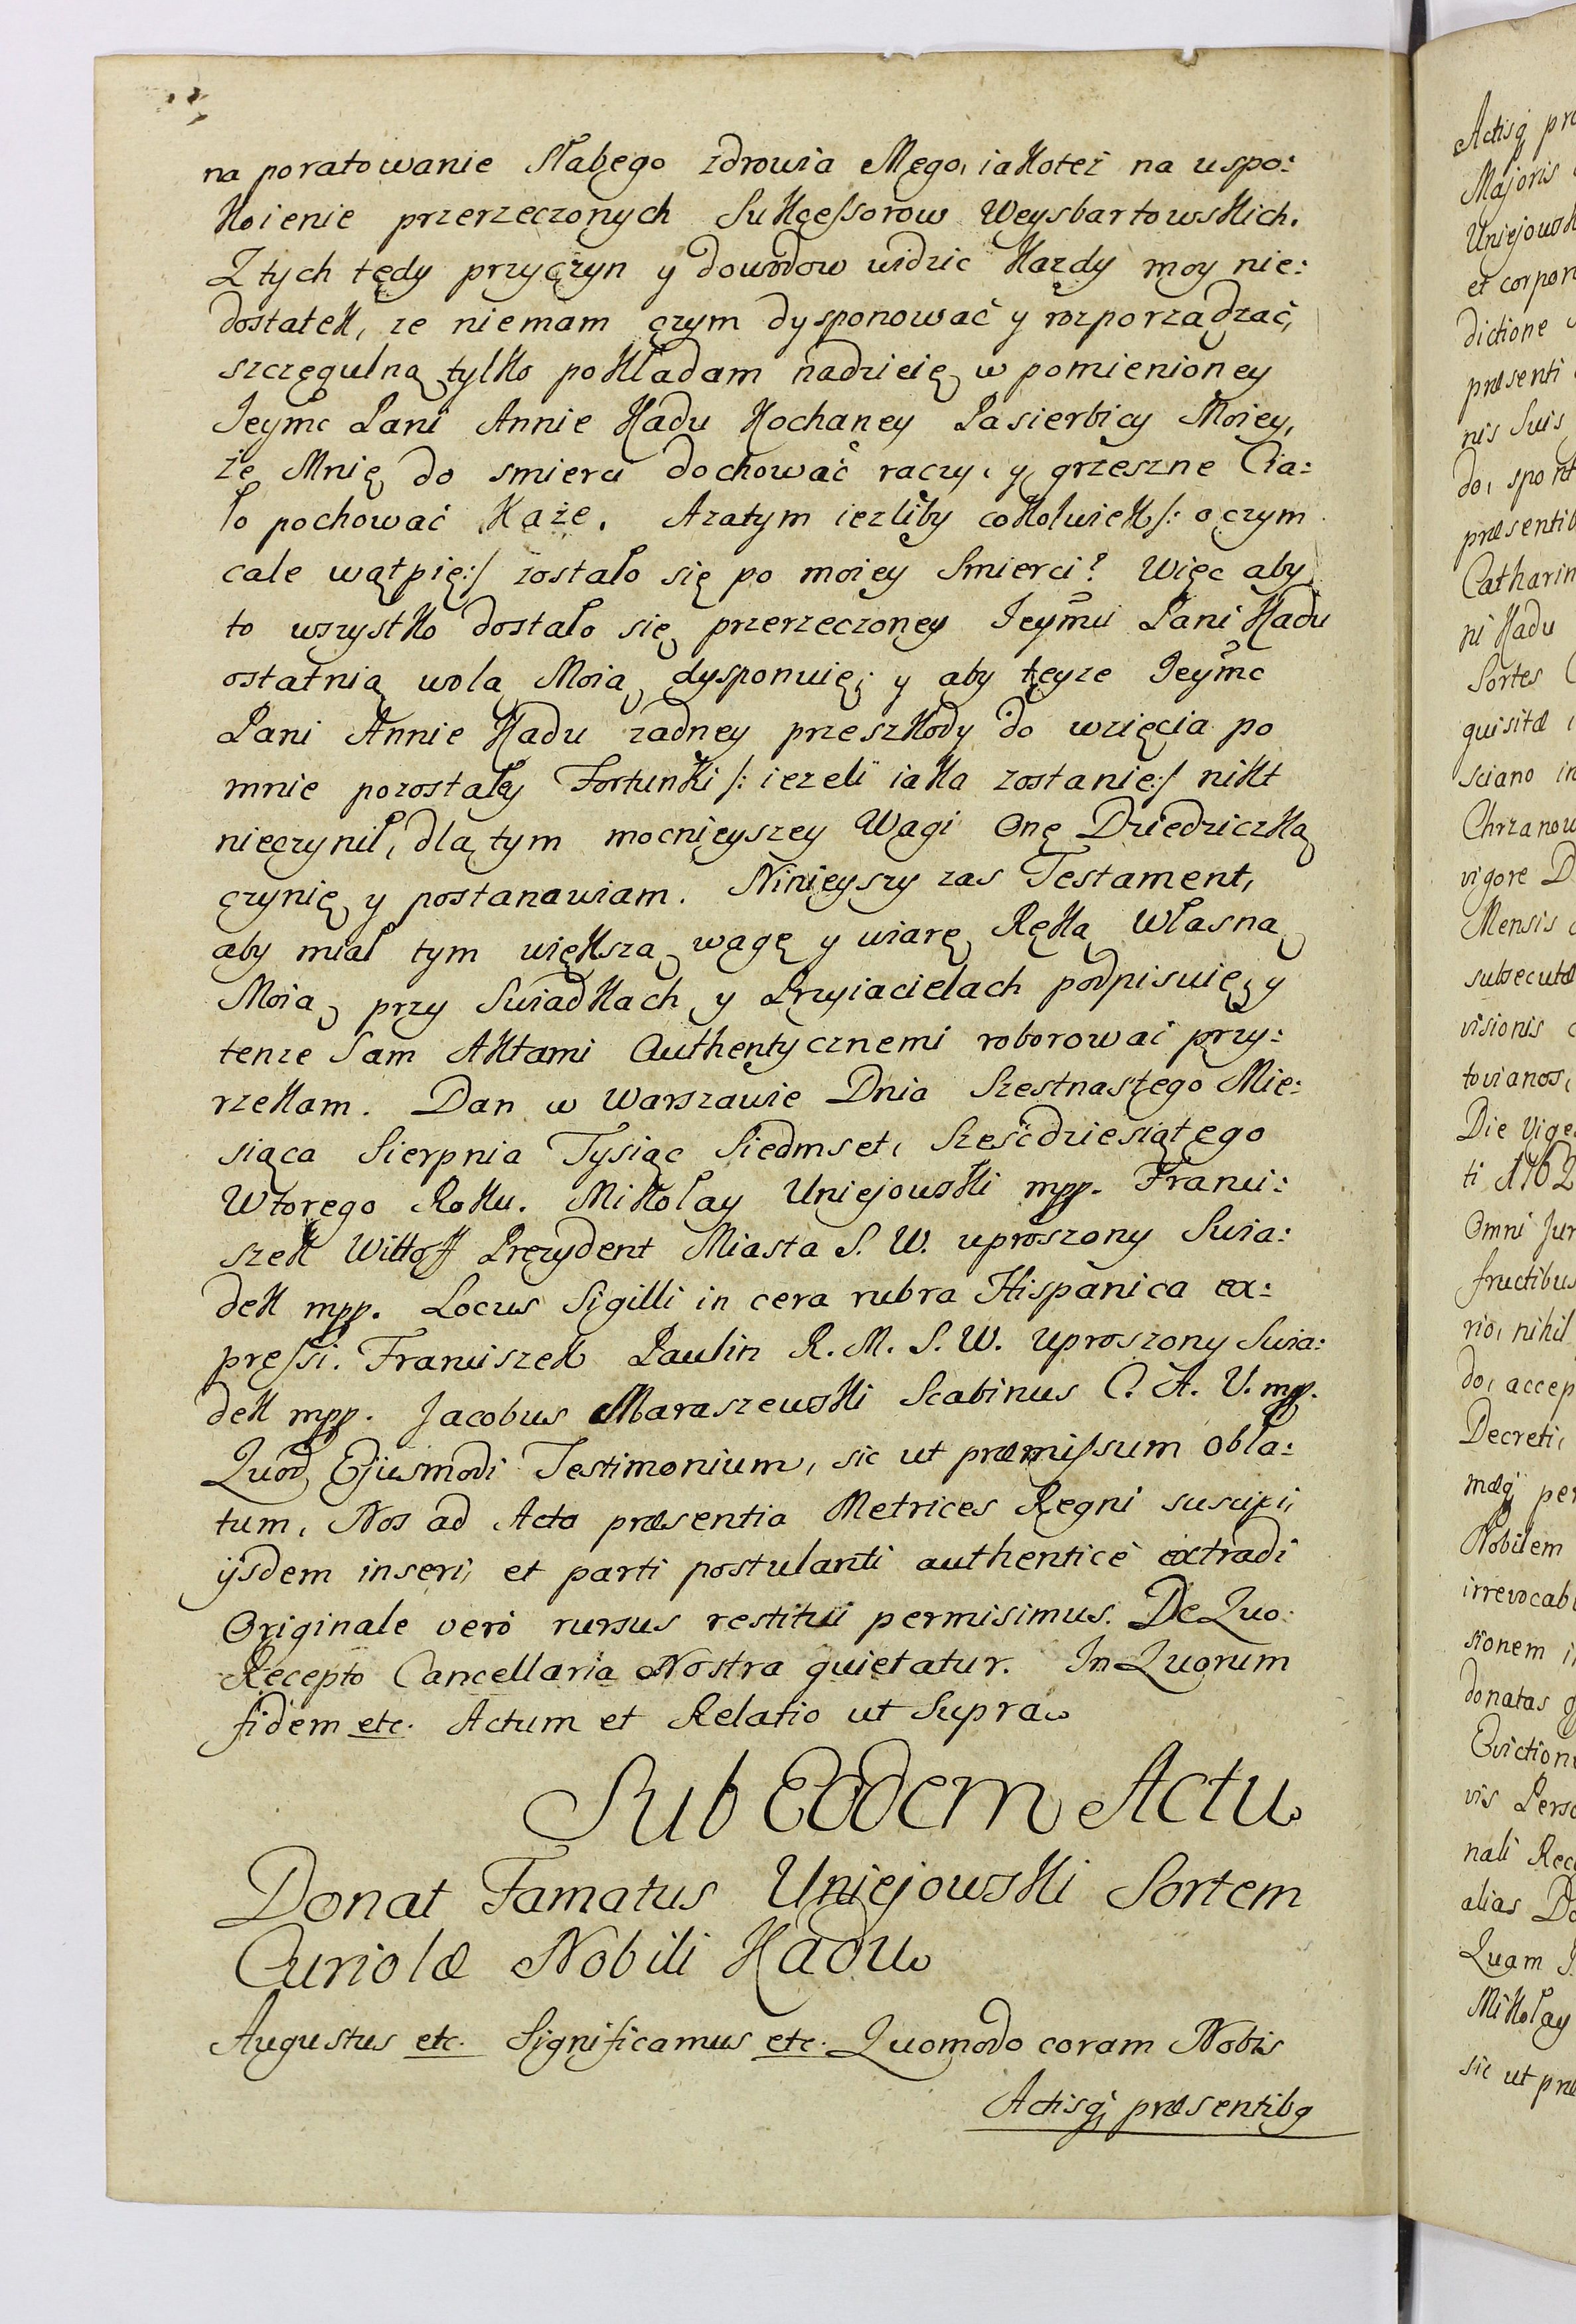 na poratowanie słabego zdrowia Mego, iakoteż na uspo:
koienie przerzeczonych Sukcessorow Weysbartowskich.
Z tych tedy przyczyn y dowodow widzic kazdy moy nie:
dostatek, ze niemam czym dysponować y rozporządzać,
szczegulną tylko pokładam nadzieię w pomienioney
Jeymc Pani Annie Hadu Kochaney Pasierbicy Moiey,
ze Mnię do smierci dochować raczy, y grzeszne Cia:
ło pochować każe. Azatym iezliby cokolwiek /: o czym
cale wątpię :/ zostało się po moiey Smierci? Więc aby
to wszystko dostało się przerzeczoney Jeymci Pani Hadu
ostatnią wolą Moią dysponuię; y aby teyze Jeymc
Pani Annie Hadu żadney przeszkody do wzięcia po
mnie pozostałey Fortunki /: iezeli iaka zostanie :/ nikt
nieczynił, dla tym mocnieyszey Wagi Onę Dziedziczką
czynię y postanawiam. Ninieyszy zas Testament,
aby miał tym większą wagę y wiarę Ręką Własną
Moią przy Swiadkach y Przyiacielach podpisuię y
tenze Sam Aktami Authentycznemi roborować przy:
rzekam. Dan w Warszawie Dnia Szestnastego Mie:
siąca Sierpnia Tysiąc Siedmset, Sześćdziesiątego
Wtorego Roku. Mikołay Uniejowski mpp. Franci:
szek Wittoff Prezydent Miasta S. W. uproszony Swia:
dek mpp. Locus Sigilli in cera rubra Hispanica ex:
pressi. Franciszek Paulin R. M. S. W. uproszony Swia:
dek mpp. Jacobus Maraszewski Scabinus C. A. V. mpp.
Quod Ejusmodi Testimonium, sic ut præmissum obla:
tum, Nos ad Acta præsentia Metrices Regni suscipi,
ijsdem inseri, et parti postulanti authenticè extradi
Originale verò rursus restitui permisimus. De Quo
Recepto Cancellaria Nostra quietatur. In Quorum
fidem etc. Actum et Relatio ut Supra
Sub Eodem Actu
Donat Famatus Uniejowski Sortem
Curiolæ Nobili Hadu
Augustus etc. Significamus etc. Quomodo coram Nobis
Actisq; præsentibq
Actisq; pr
Majoris
Uniejowsk
et corpor
dictione
præsenti
nis Suis
do, spont
præsentib
Catharin
ni Hadu
Sortes
quisitæ
sciano in
Chrzanow
vigore D
Mensis
subsecutæ
visionis
tovianos,
Die Viges
ti 1762
Omni Jur
fructibus
rio, nihil
do, accep
Decreti,
mæq; per
Nobilem
irrevocab
sionem i
donatas
Eviction
vis Perso
nali Rec
alias Do
Quam
Mikołay
sic ut præ